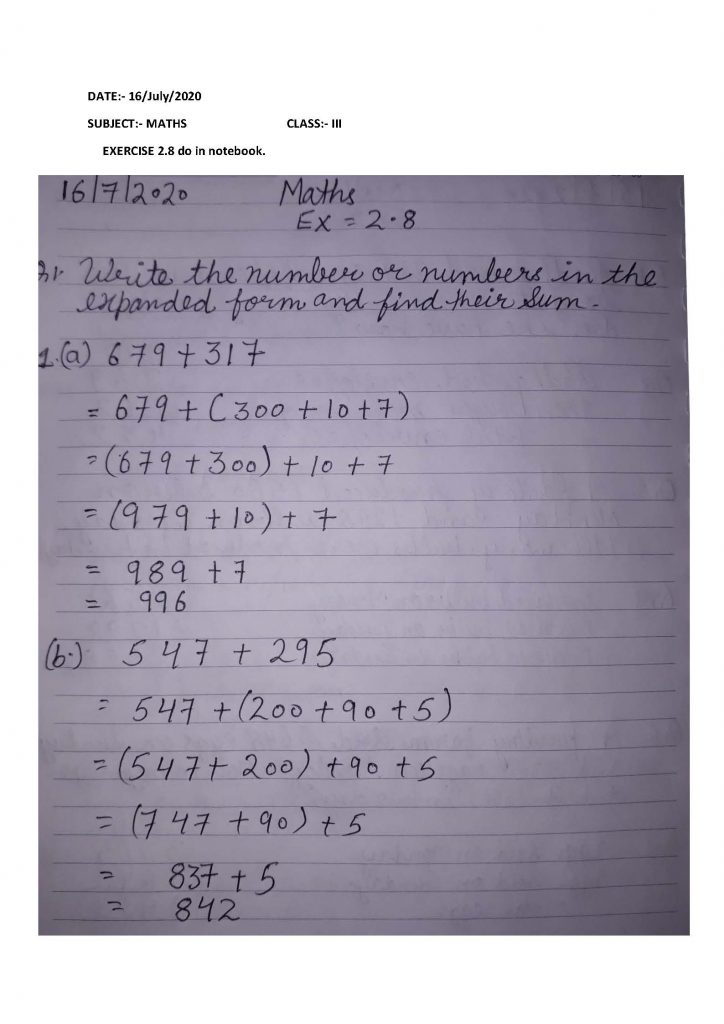 DATE:- 16/July/2020
SUBJECT:- MATHS CLASS:- III
EXERCISE 2.8 do in notebook.
16/7/2020 Maths
Ex = 2.8
Write the number or numbers in the
expanded form and find their sum.
1.(a) 679 + 317
= 679 + (300 + 10 + 7)
= (679 + 300) + 10 + 7
= (979 + 10) + 7
= 989 + 7
= 996
(b.) 547 + 295
= 547 + (200 + 90 + 5)
= (547 + 200) + 90 + 5
= (747 + 90) + 5
= 837 + 5
= 842